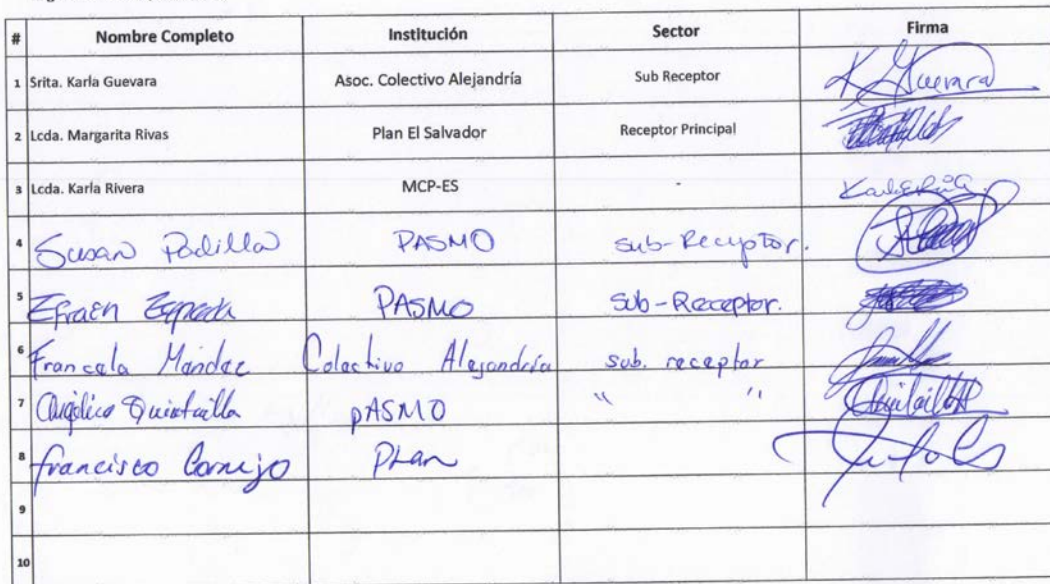 # Nombre Completo Institución Sector Firma
1 Srita. Karla Guevara Asoc. Colectivo Alejandría Sub Receptor K Guevara
2 Lcda. Margarita Rivas Plan El Salvador Receptor Principal
3 Lcda. Karla Rivera MCP-ES -
4 Susan Padilla PASMO Sub-Receptor.
5 Efraen PASMO Sub-Receptor.
6 Francela Mendez Colectivo Alejandría sub. receptor
7 Angélica Quintanilla pASMO " "
8 francisco Cornejo Plan
9
10